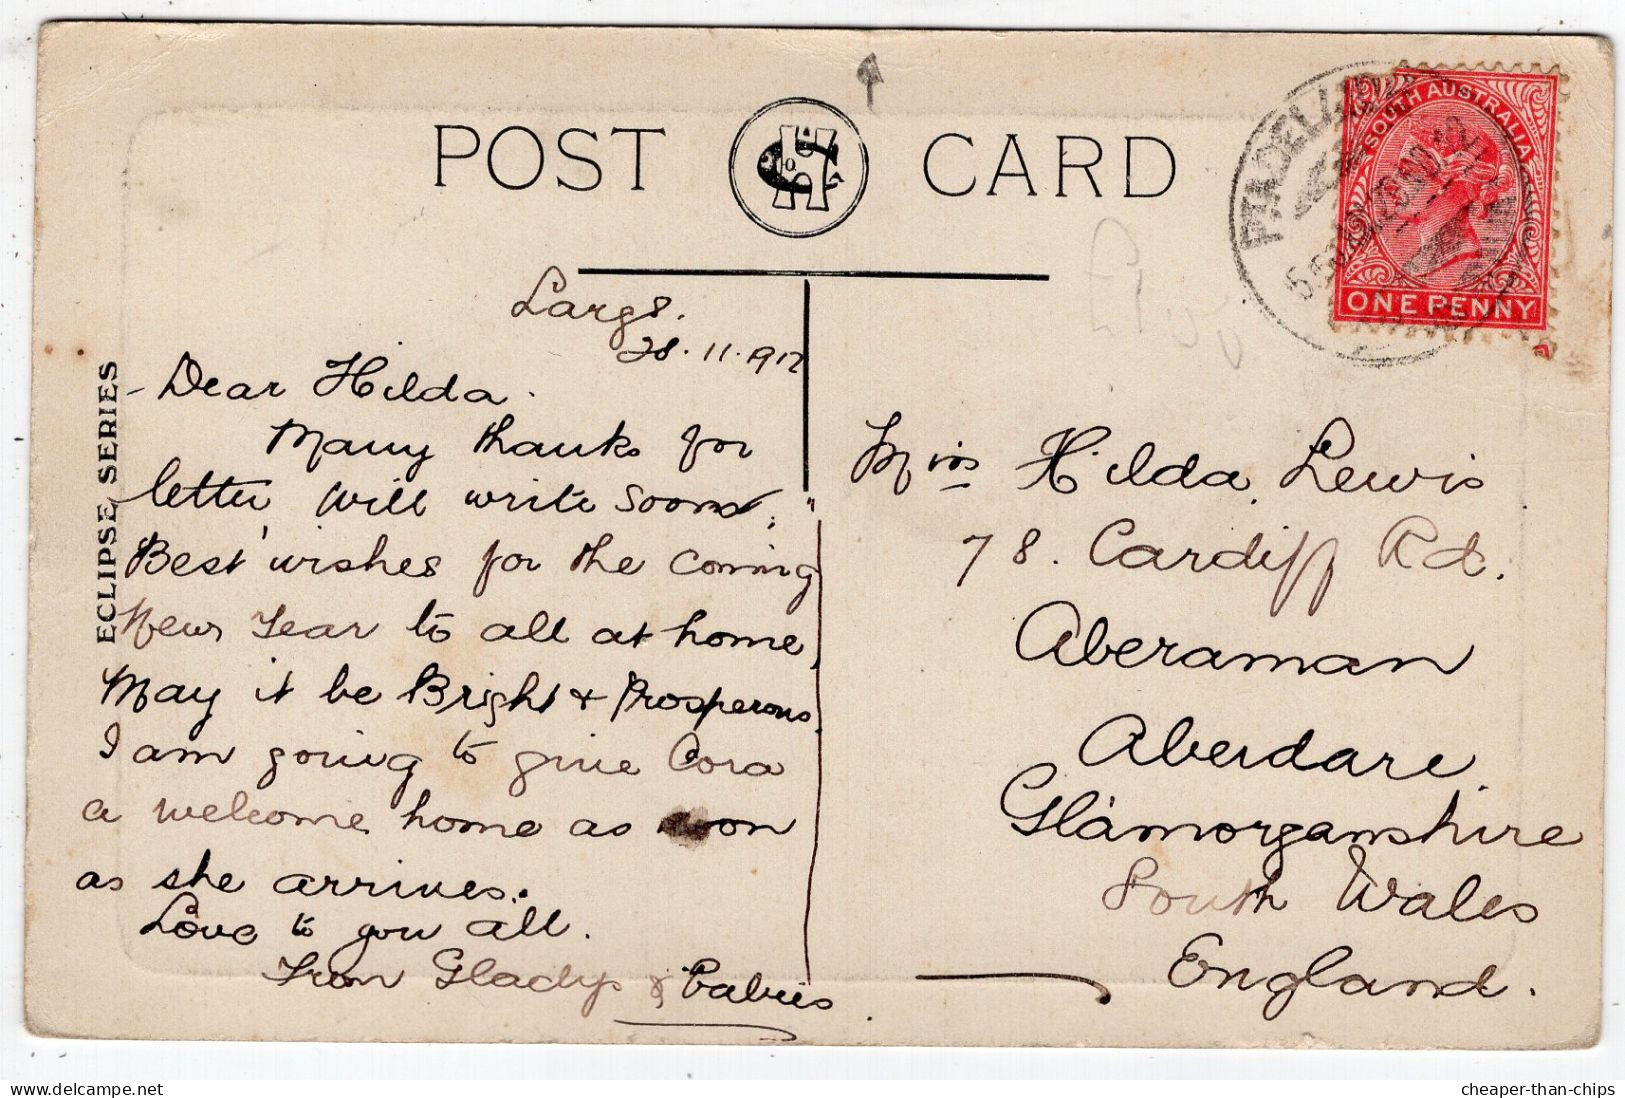 POST CARD
SOUTH AUSTRALIA
ONE PENNY
ECLIPSE SERIES
Largs.
28.11.912
Dear Hilda.
Many thanks for
letter will write soon.
Best wishes for the coming
New Year to all at home,
May it be Bright & Prosperous.
I am going to give Cora
a welcome home as soon
as she arrives.
Love to you all.
From Gladys & Babies.
Miss Hilda Lewis
78. Cardiff Rd.
Aberaman
Aberdare
Glamorganshire
South Wales
England.
cheaper-than-chips